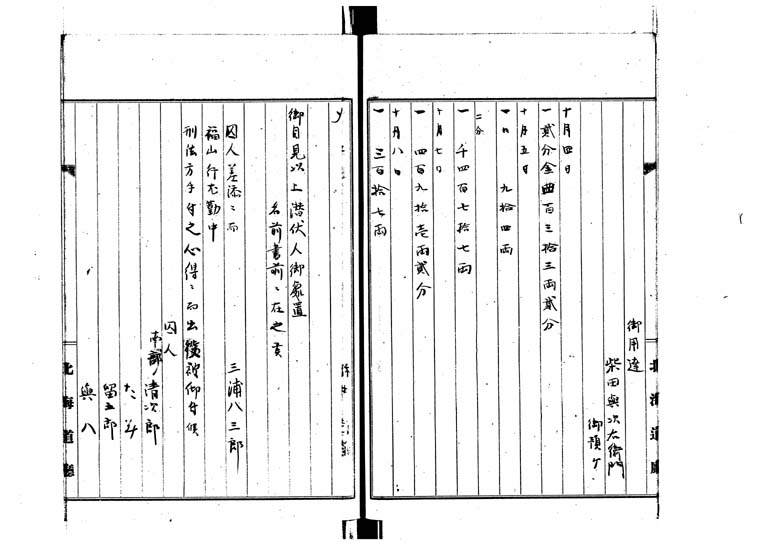 御用達
柴田與次右衛門
御預ケ
十月四日
一 貳分金曲百三拾三両貳分
十月五日
一 〃 九拾四両
二分
一 千四百七拾七両
十月七日
一 四百九拾壱両貳分
十月八日
一 三百拾七両
北海道廳
〆
御目見以上潜伏人御処置
名前書前ニ在之
囚人差添ニ而
三浦八三郎
福山行在勤中
刑法方手付之心得ニ而出役被仰付候
囚人
南部ノ清次郎
留五郎
與八
北海道廳